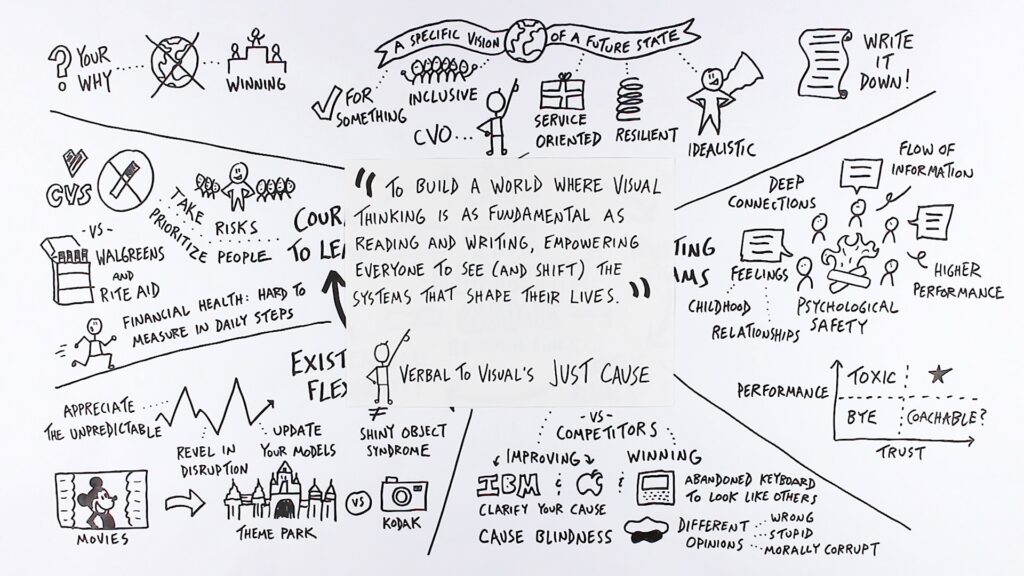 A SPECIFIC VISION OF A FUTURE STATE
? YOUR WHY
WINNING
FOR SOMETHING
INCLUSIVE
CVO...
SERVICE ORIENTED
RESILIENT
IDEALISTIC
WRITE
IT
DOWN!
CVS
-VS-
WALGREENS
AND
RITE AID
TAKE RISKS
PRIORITIZE PEOPLE
FINANCIAL HEALTH: HARD TO
MEASURE IN DAILY STEPS
COUR
TO LEA
"TO BUILD A WORLD WHERE VISUAL
THINKING IS AS FUNDAMENTAL AS
READING AND WRITING, EMPOWERING
EVERYONE TO SEE (AND SHIFT) THE
SYSTEMS THAT SHAPE THEIR LIVES."
VERBAL TO VISUAL'S JUST CAUSE
TING
AMS
DEEP
CONNECTIONS
FLOW OF
INFORMATION
FEELINGS
CHILDHOOD
RELATIONSHIPS
PSYCHOLOGICAL
SAFETY
HIGHER
PERFORMANCE
PERFORMANCE
TOXIC
BYE
COACHABLE?
TRUST
EXIST
FLEX
≠
SHINY OBJECT
SYNDROME
APPRECIATE
THE UNPREDICTABLE
REVEL IN
DISRUPTION
UPDATE
YOUR MODELS
MOVIES
THEME PARK
VS
KODAK
-VS-
COMPETITORS
IMPROVING
WINNING
IBM & &
ABANDONED KEYBOARD
TO LOOK LIKE OTHERS
CLARIFY YOUR CAUSE
CAUSE BLINDNESS
DIFFERENT
OPINIONS
WRONG
STUPID
MORALLY CORRUPT